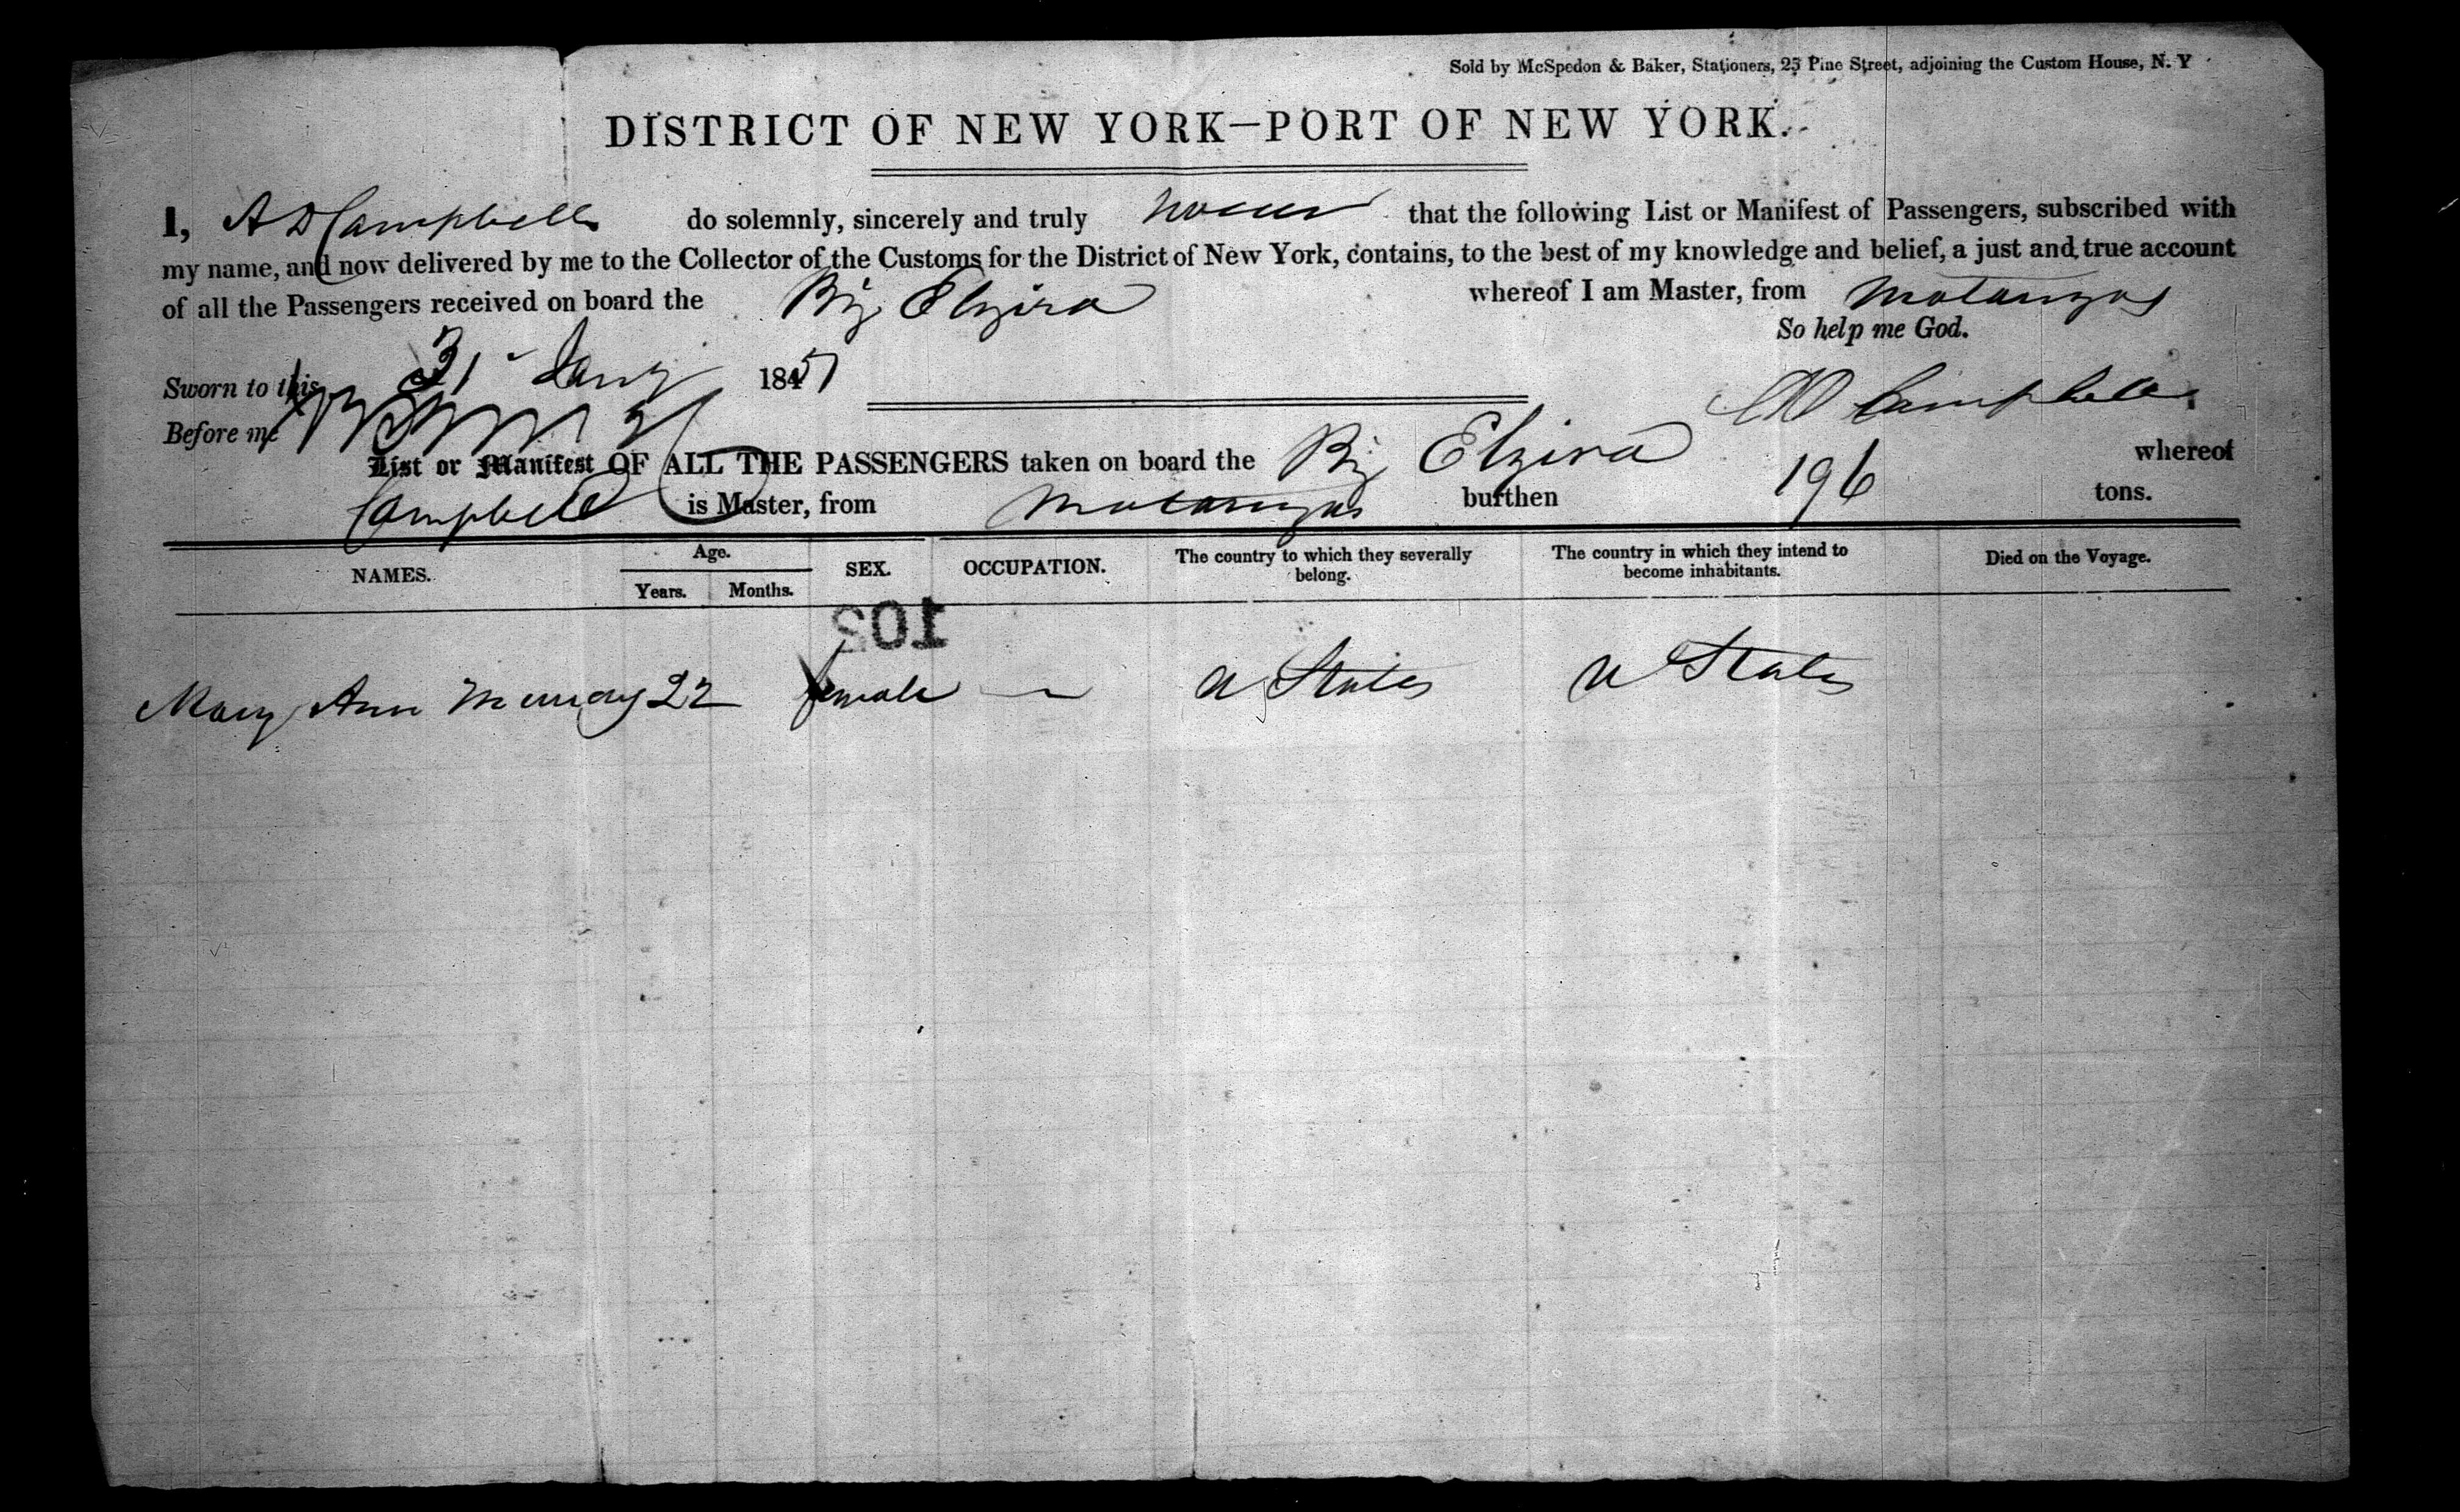 Sold by McSpedon & Baker, Stationers, 25 Pine Street, adjoining the Custom House, N. Y
DISTRICT OF NEW YORK—PORT OF NEW YORK.
I, A D Campbell do solemnly, sincerely and truly that the following List or Manifest of Passengers, subscribed with
my name, and now delivered by me to the Collector of the Customs for the District of New York, contains, to the best of my knowledge and belief, a just and true account
of all the Passengers received on board the Brig Elzira whereof I am Master, from Matanzas
So help me God.
Sworn to this 31 Jany 1851
A D Campbell
Before me
List or Manifest OF ALL THE PASSENGERS taken on board the Brig Elzira whereof
Campbell is Master, from Matanzas burthen 196 tons.
NAMES. Age. Years. Months. SEX. OCCUPATION. The country to which they severally belong. The country in which they intend to become inhabitants. Died on the Voyage.
102
Mary Ann Murray 22 female — U States U States